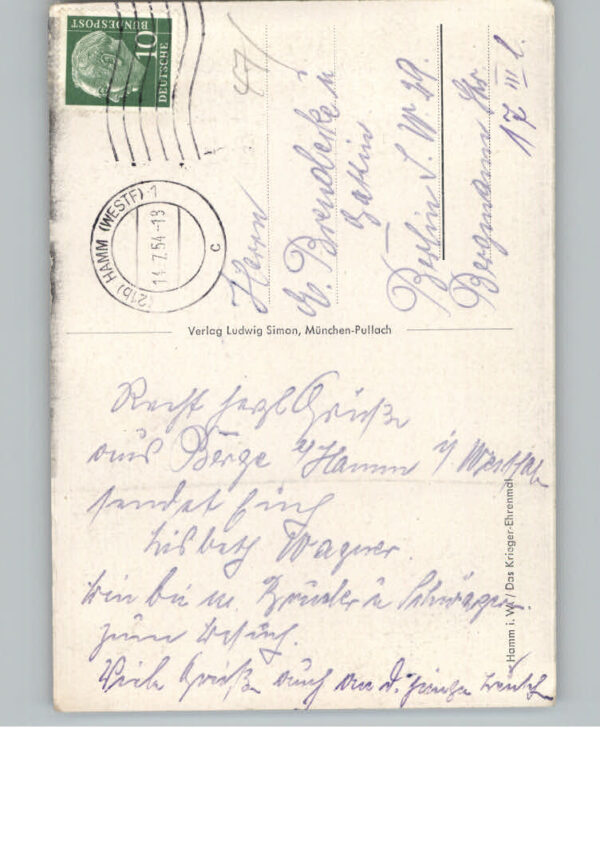 10
DEUTSCHE
BUNDESPOST
(21b) HAMM (WESTF) 1
14.7.54-18
c
47/
Herrn
E. Brendicke u
Gattin
Berlin S.W. 29.
Bergmann Str.
17 III l.
Verlag Ludwig Simon, München-Pullach
Recht herzl Grüße
aus Berge b/Hamm i/ Westfal
sendet Euch
Lisbeth Wagner.
bin bei m. Bruder u Schwägerin.
zum Besuch.
Viele Grüße auch an d.
Hamm i. W. / Das Krieger-Ehrenmal